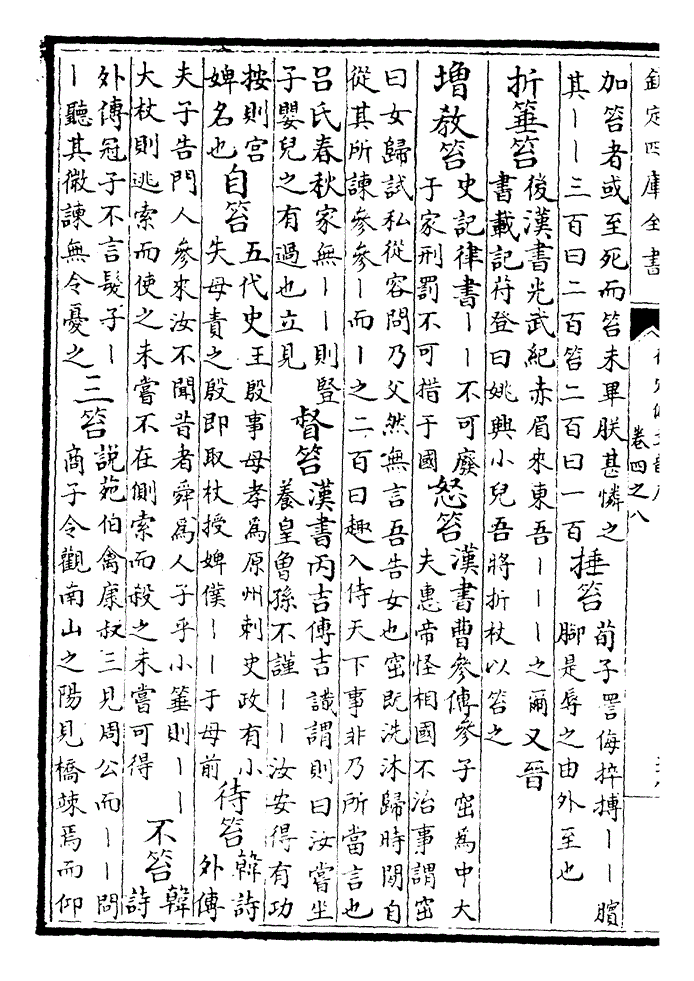 欽定四庫全書
卷四之八
加笞者或至死而笞未畢朕甚憐之
其丨丨三百曰二百笞二百曰一百
捶笞
荀子詈侮捽搏丨丨臏
腳是辱之由外至也
折箠笞
後漢書光武紀赤眉來東吾丨丨丨之爾又晉
書載記苻登曰姚興小兒吾將折杖以笞之
増教笞
史記律書丨丨不可廢
于家刑罰不可措于國
怒笞
漢書曹參傳參子窋為中大
夫惠帝怪相國不治事謂窋
曰女歸試私從容問乃父然無言吾告女也窋既洗沐歸時閒自
從其所諫參參丨而丨之二百曰趣入侍天下事非乃所當言也
吕氏春秋家無丨丨則豎
子嬰兒之有過也立見
督笞
漢書丙吉傳吉識謂則曰汝嘗坐
養皇曾孫不謹丨丨汝安得有功
按則宫
婢名也
自笞
五代史王殷事母孝為原州刺史政有小
失母責之殷即取杖授婢僕丨丨于母前
待笞
韓詩
外傳
夫子告門人參來汝不聞昔者舜為人子乎小箠則丨丨
大杖則逃索而使之未嘗不在側索而殺之未嘗可得
不笞
韓
詩
外傳冠子不言髮子丨
丨聽其微諫無令憂之
三笞
説苑伯禽康叔三見周公而丨丨問
商子令觀南山之陽見橋竦焉而仰